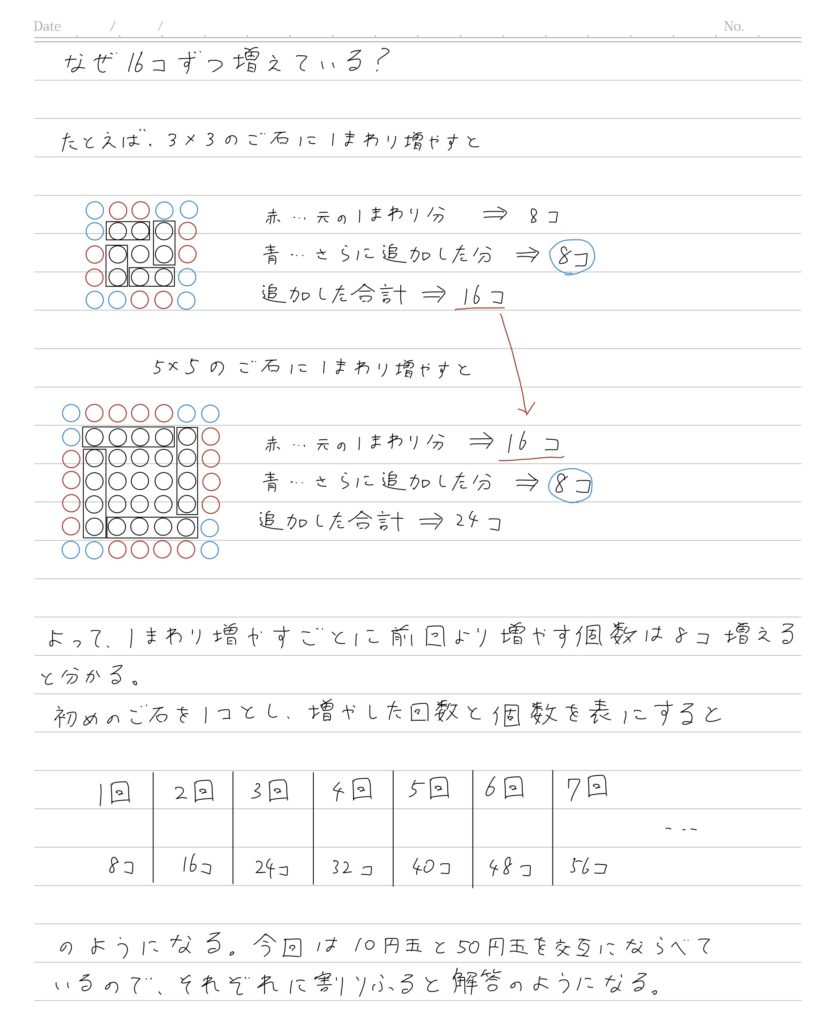 Date / / No.
なぜ16コずつ増えている?
たとえば、3×3のご石に1まわり増やすと
赤…元の1まわり分 ⇒ 8コ
青…さらに追加した分 ⇒ 8コ
追加した合計 ⇒ 16コ
5×5のご石に1まわり増やすと
赤…元の1まわり分 ⇒ 16コ
青…さらに追加した分 ⇒ 8コ
追加した合計 ⇒ 24コ
よって、1まわり増やすごとに前回より増やす個数は8コ増える
と分かる。
初めのご石を1コとし、増やした回数と個数を表にすると
1回 2回 3回 4回 5回 6回 7回
...
8コ 16コ 24コ 32コ 40コ 48コ 56コ
のようになる。今回は10円玉と50円玉を交互にならべて
いるので、それぞれに割りふると解答のようになる。